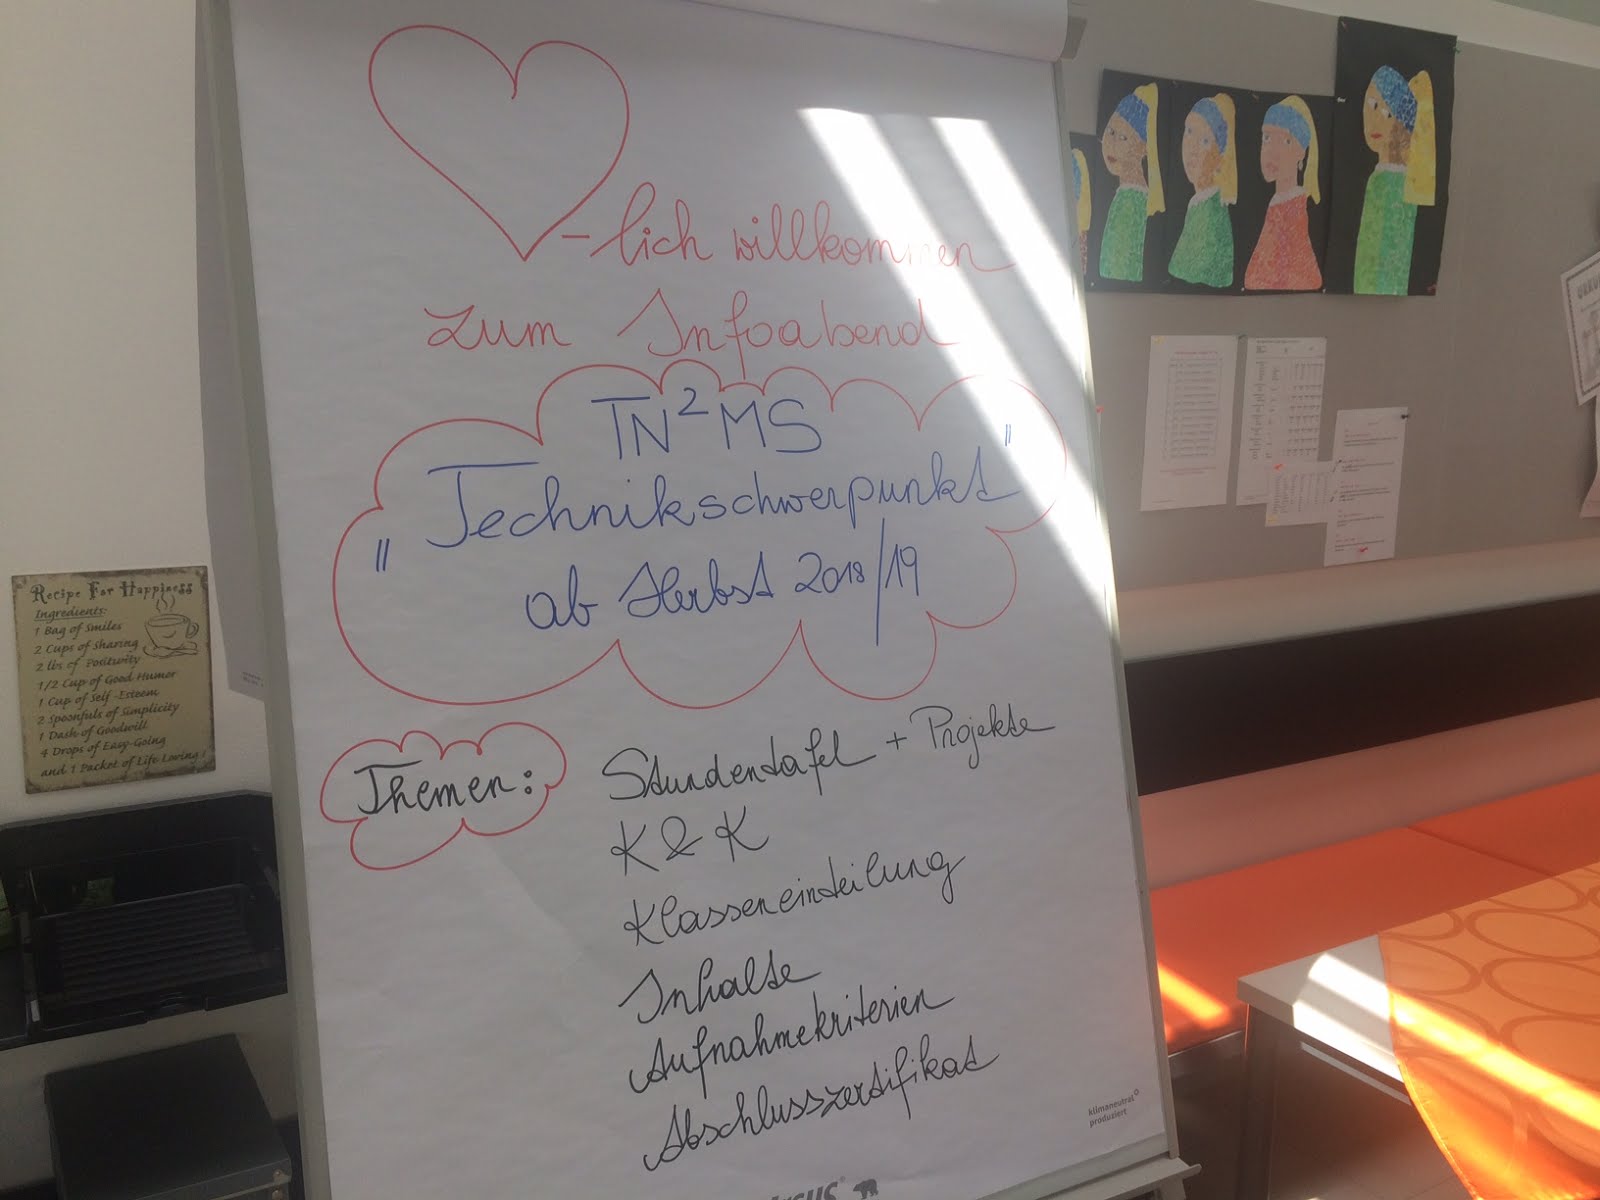 -lich willkommen
zum Infoabend
TN²MS
"Technikschwerpunkt"
ab Herbst 2018/19
Themen:
Stundentafel + Projekte
K & K
Klasseneinteilung
Inhalte
Aufnahmekriterien
Abschlusszertifikat
klimaneutral
produziert
Recipe For Happiness
Ingredients:
1 Bag of Smiles
2 Cups of Sharing
2 lbs of Positivity
1/2 Cup of Good Humor
1 Cup of Self-Esteem
2 Spoonfuls of Simplicity
1 Dash of Goodwill
4 Drops of Easy-Going
and 1 Packet of Life Loving!